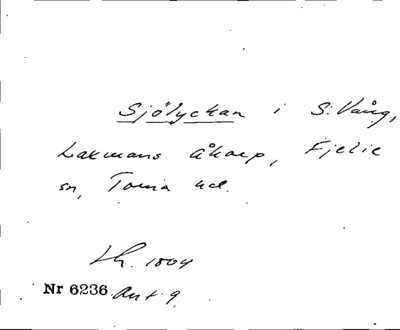 Sjölyckan i S. Vång,
Laxmans Åkarp, Fjelie
sn, Torna hd.
Lh. 1804
Nr 6236 Akt 9.